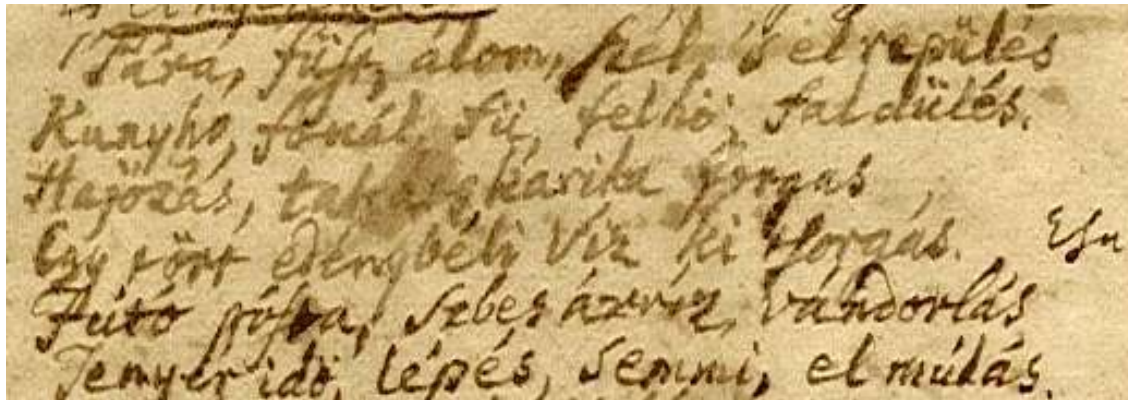 Pára, füst, álom, szél, 's elrepülés
Kunyho, fonál, fü, felhö, faldülés.
Hajózás, karika forgas
Egy tört edénybéli Viz ki tsorgás.
Futó pósta, árvíz, vándorlás
Tenyér idö, lépés, semmi, el múlás.